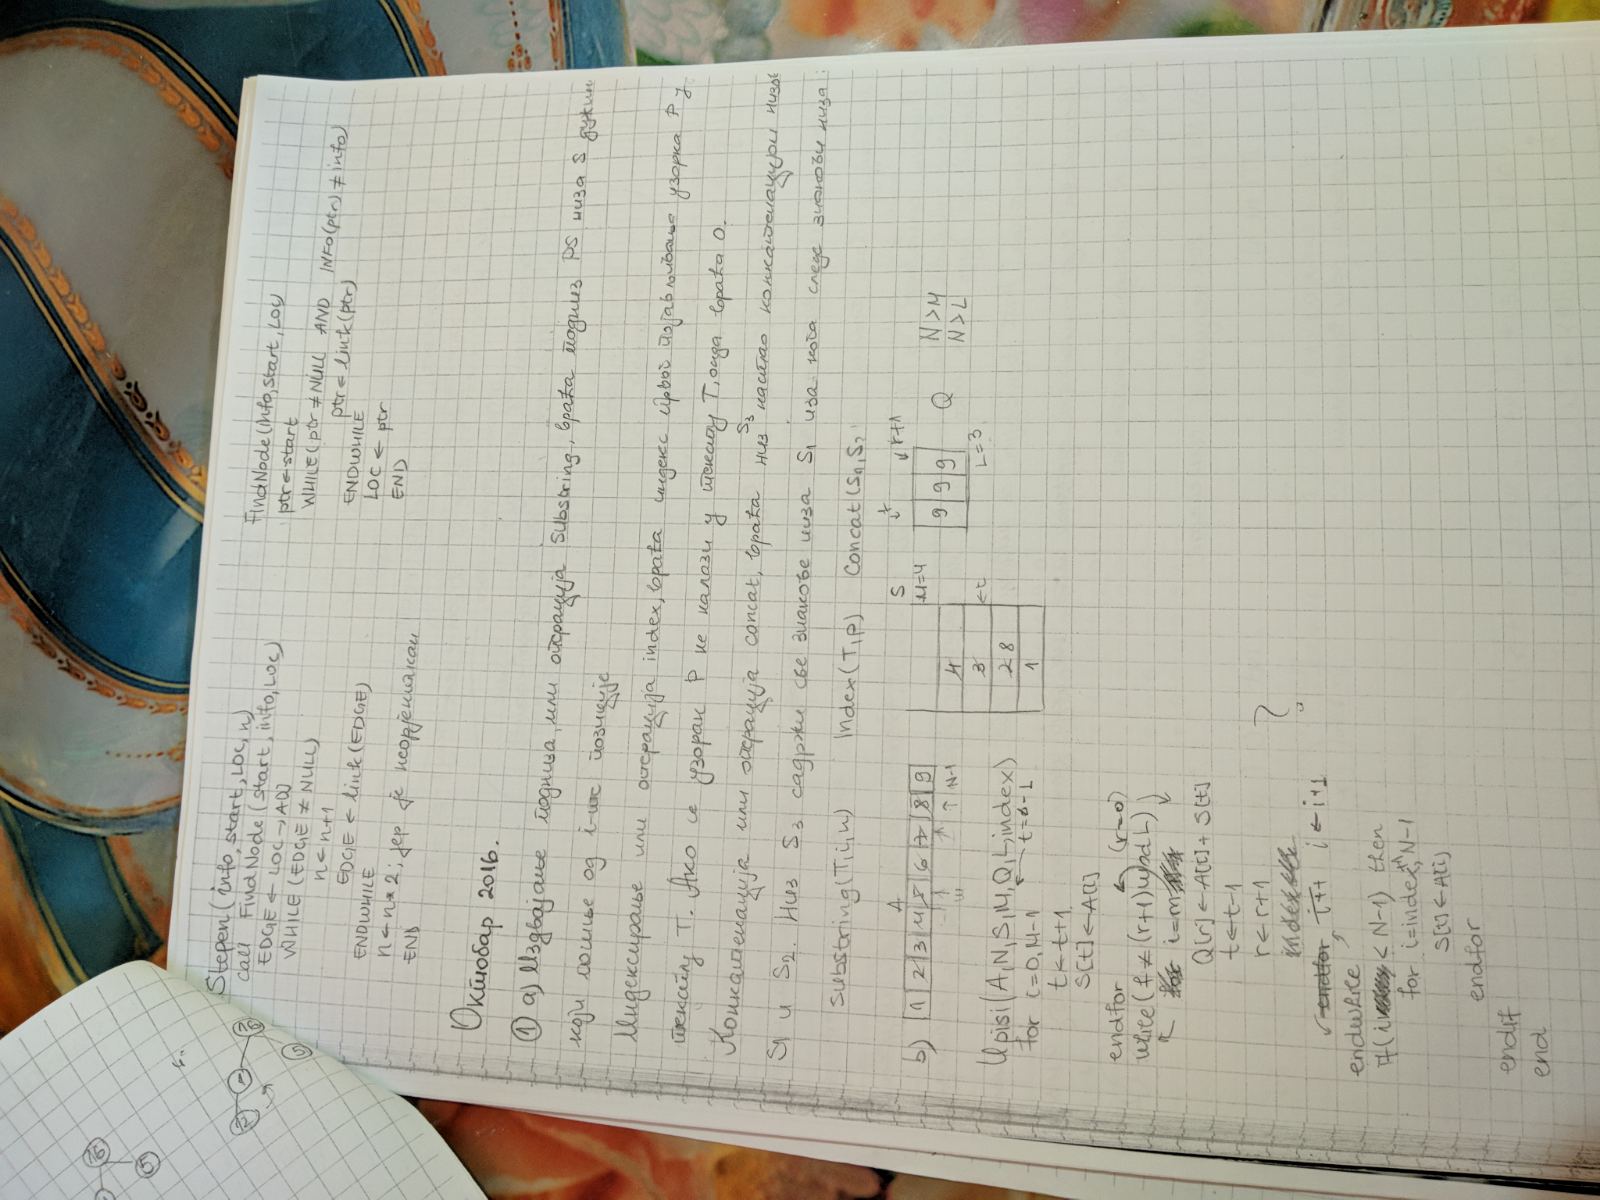 Stepen(info, start, LOC, n)
call FindNode(start, info, LOC)
EDGE ← LOC → ADJ
WHILE (EDGE ≠ NULL)
n ← n+1
EDGE ← link(EDGE)
ENDWHILE
n ← n * 2; јер је неорјентисан
END
FindNode(info, start, LOC)
ptr ← start
WHILE(ptr ≠ NULL AND INFO(ptr) ≠ info)
ptr ← link(ptr)
ENDWHILE
LOC ← ptr
END
Октобар 2016.
① а) Издвајање подниза, или операција substring, враћа подниз PS низа S дужин
који почиње од i-те позиције
Индексирање или операција index, враћа индекс првог појављивања узорка P у
тексту T. Ако се узорак P не налази у тексту T, онда враћа 0.
Конкатенација или операција concat, враћа низ S3 настао конкатенацијом низова
S1 и S2. Низ S3 садржи све знакове низа S1 иза кога следе знакови низа
substring(T, i, n) Index(T, p) Concat(S1, S2
A
b) 1 2 3 4 5 6 7 8 9
N-1
S
M=4
4
3 ← t
2 8
1
f r+1
9 9 9 Q
L=3
N > M
N > L
Upisi(A, N, S, M, Q, L, index)
for i=0, M-1
t ← t+1
S[t] ← A[i]
endfor (r=0)
while(f ≠ (r+1) mod L)
i=m
Q[r] ← A[t] + S[t]
t ← t-1
r ← r+1
?
endfor i++ i ← i+1
endwhile
if(i < N-1) then
for i=index, N-1
S[t] ← A[i]
endfor
endif
end
16
5
12
1
16
5